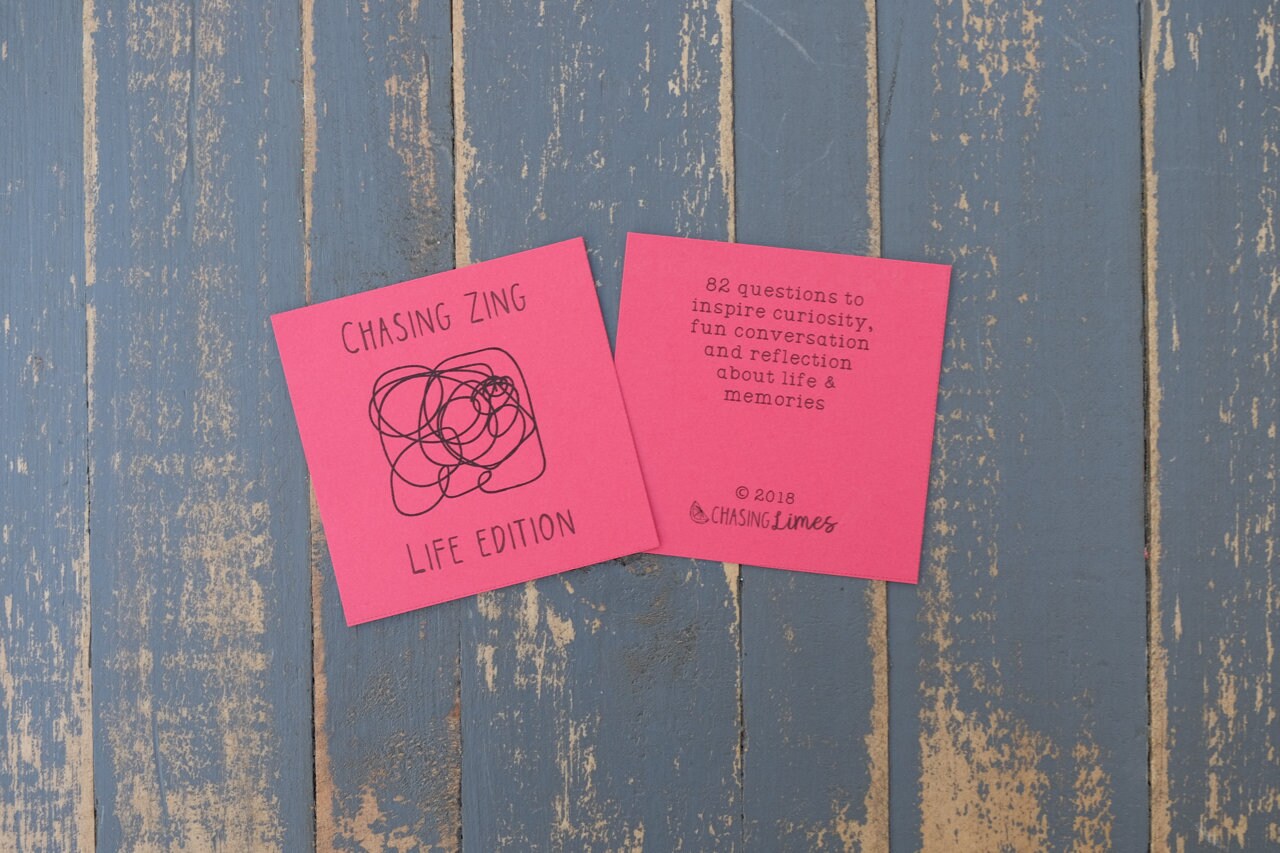 CHASING ZING
LIFE EDITION
82 questions to
inspire curiosity,
fun conversation
and reflection
about life &
memories
© 2018
CHASING Limes